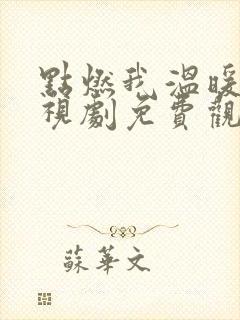 點燃我 溫暖
視劇免費觀
蘇華文